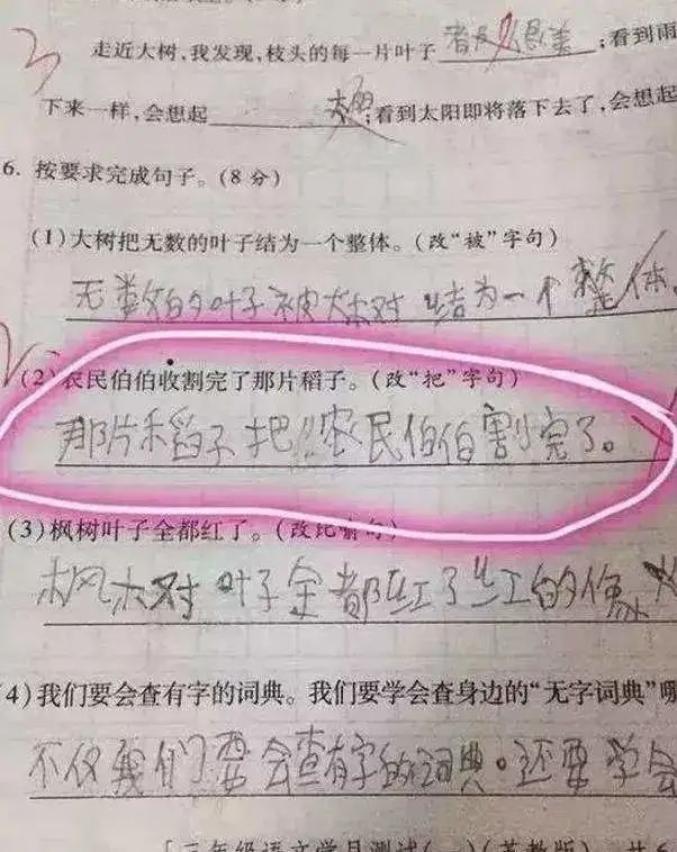 走近大树,我发现,枝头的每一片叶子 ;看到雨
下来一样,会想起 太阳;看到太阳即将落下去了,会想起
6. 按要求完成句子。(8分)
(1)大树把无数的叶子结为一个整体。(改“被”字句)
无数的叶子被大树结为一个整体。
(2)农民伯伯收割完了那片稻子。(改“把”字句)
那片稻子把农民伯伯割完了。
(3)枫树叶子全都红了。(改比喻句)
枫树叶子全都红了红的像火
4)我们要会查有字的词典。我们要学会查身边的“无字词典”哪
不仅我们要会查有字的词典。还要学会
[三年级语文学月测试(一)(苏教版) 共6